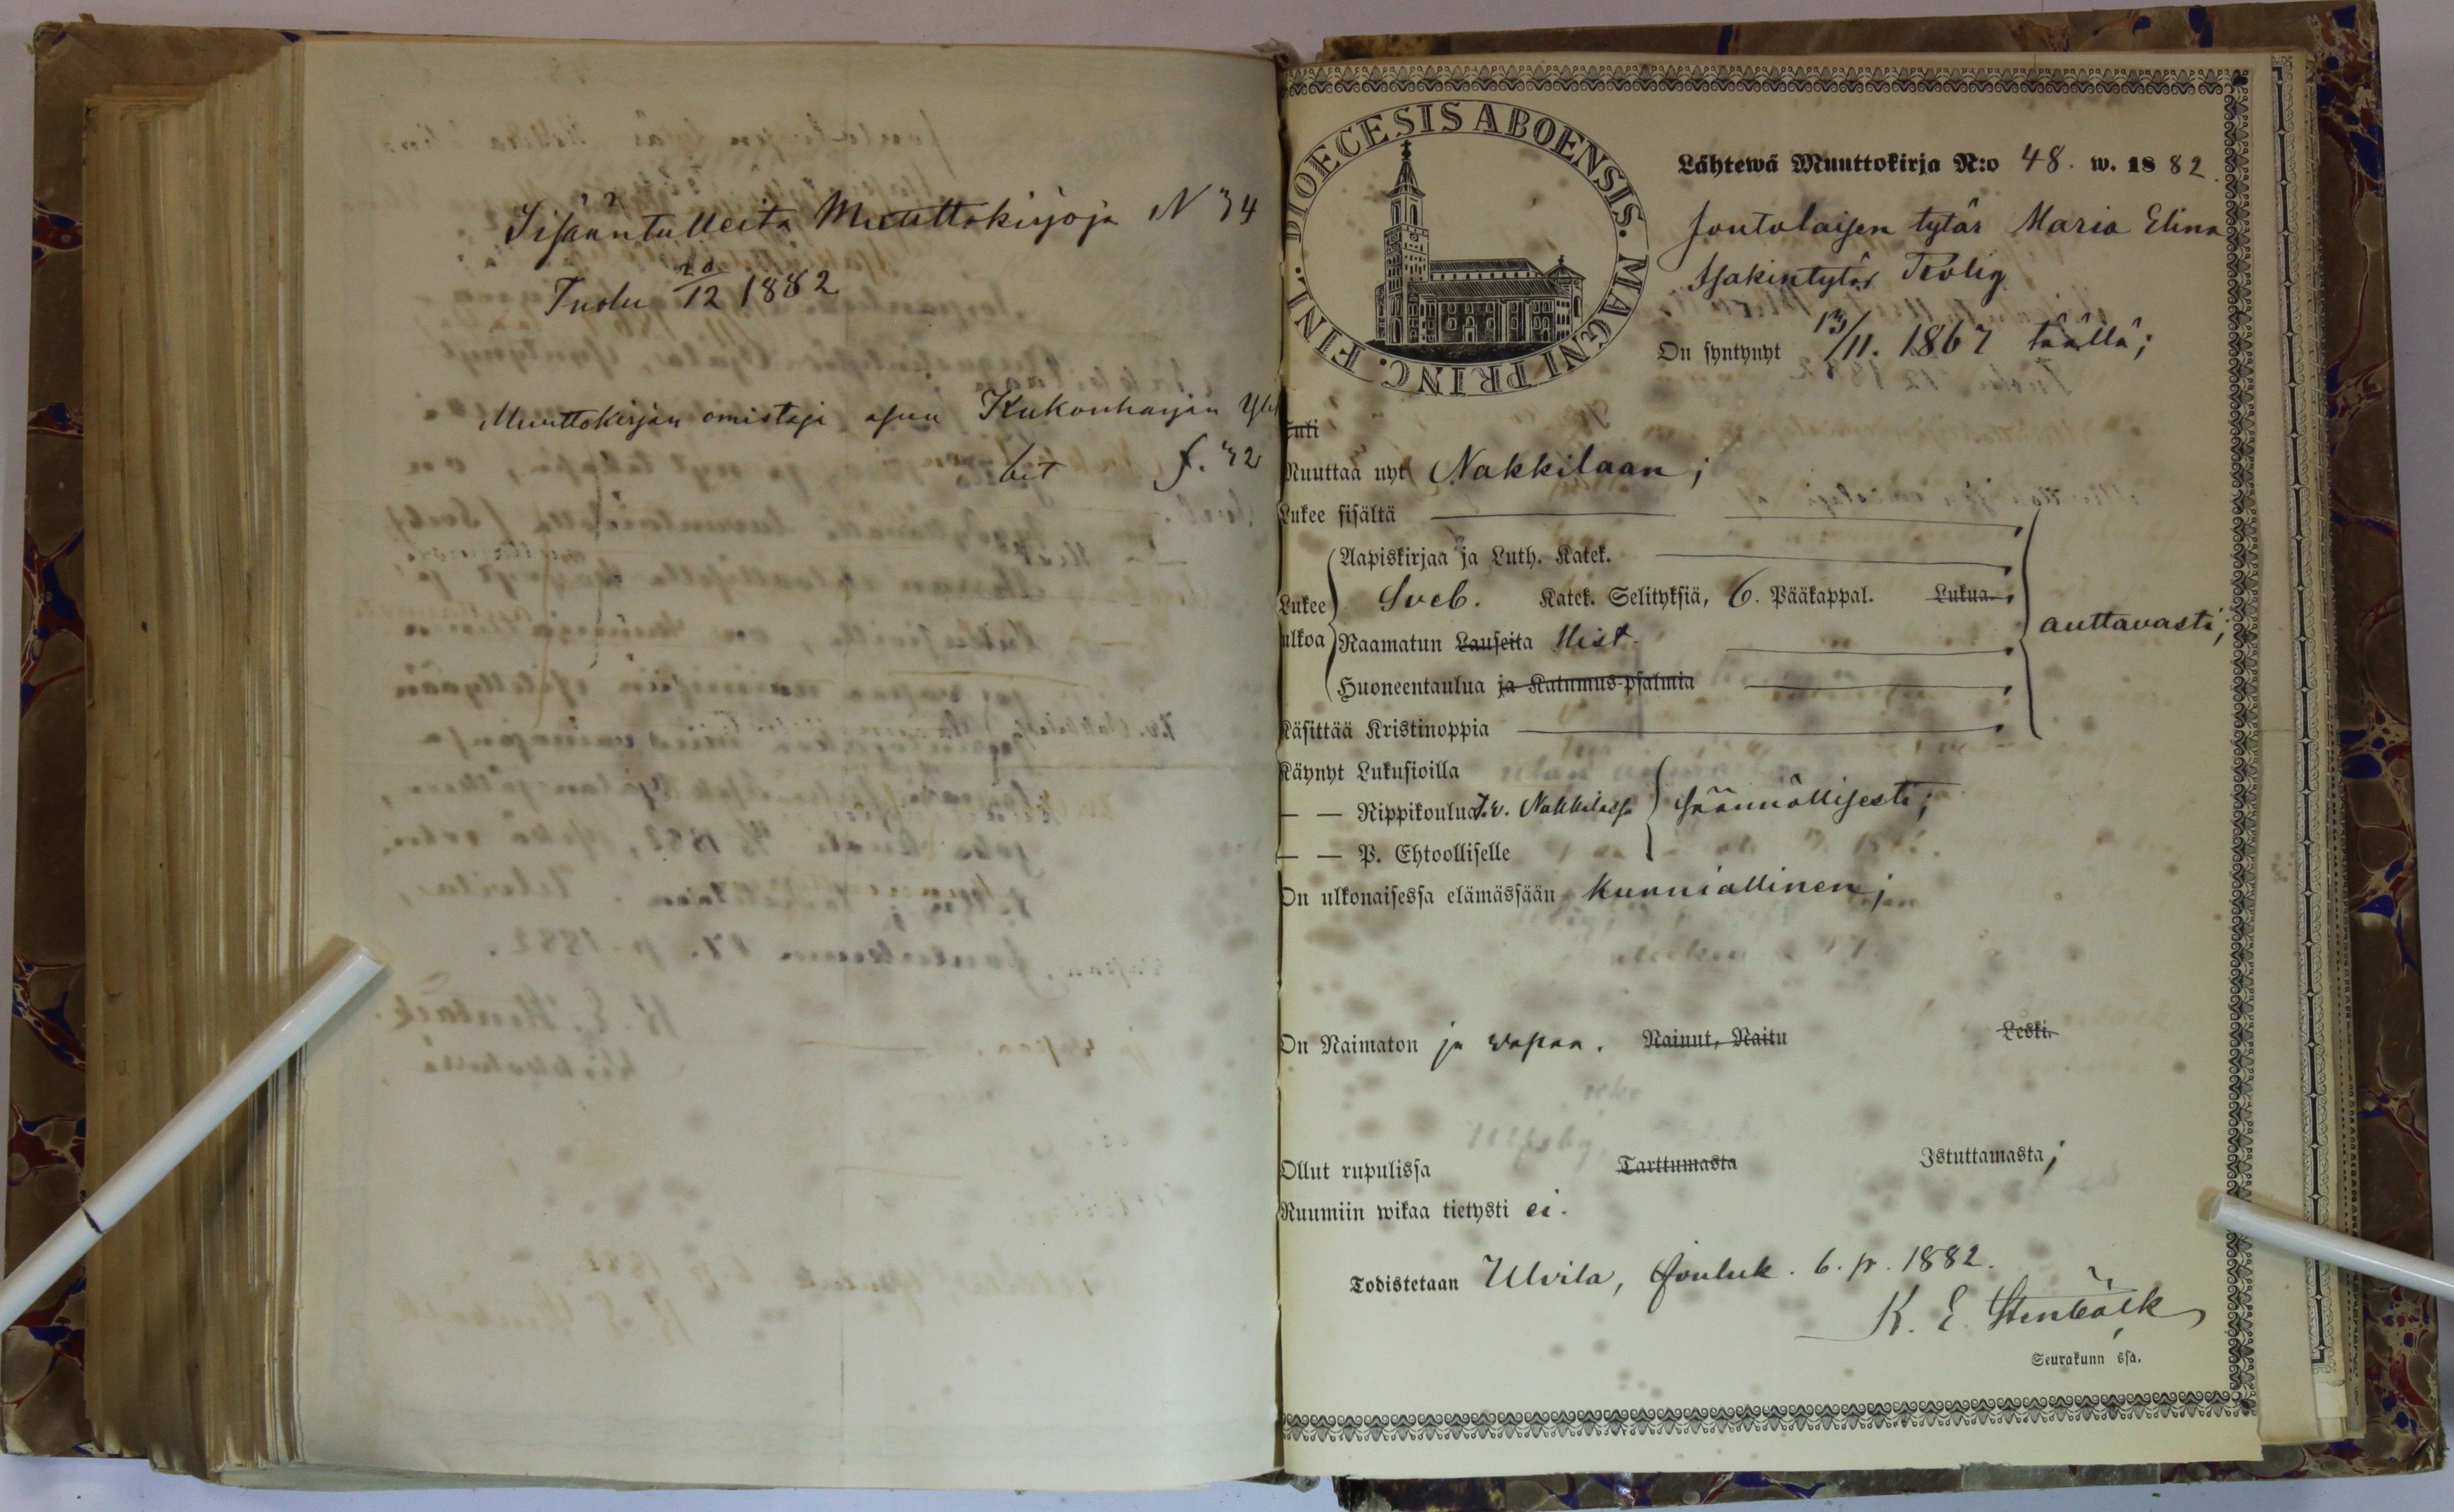 Sisääntulleita Muuttokirjoja N 34
Tuotu 20/12 1882
Muuttokirjan omistaja asuu Kukonharjan
bit f. 32
DIOECESIS ABOENSIS. MAGNI PRINC. FINL.
Lähtewä Muuttokirja N:o 48. w. 1882.
Joutolaisen tytär Maria Elina
Isakintytär
On syntynyt 13/11. 1867 täällä;
Tuli
Muuttaa nyt Nakkilaan;
Lukee sisältä
Aapiskirjaa ja Luth. Katek.
Lukee Sveb. Katek. Selityksiä, 6. Pääkappal. Lukua.
auttavasti;
ulkoa Raamatun Lauseita Hist.
Huoneentaulua ja Katumus-psalmia
Käsittää Kristinoppia
Käynyt Lukusioilla
— — Rippikoulua t.v. Nakkilassa säännöllisesti;
— — P. Ehtoolliselle
On ulkonaisessa elämässään kunniallinen;
On Naimaton ja vapaa. Nainut, Naitu Leski.
Ollut rupulissa Tarttumasta Istuttamasta;
Ruumiin wikaa tietysti ei.
Todistetaan Ulvila, Jouluk. 6. p. 1882.
K. E. Stenbäck
Seurakunn ssa.